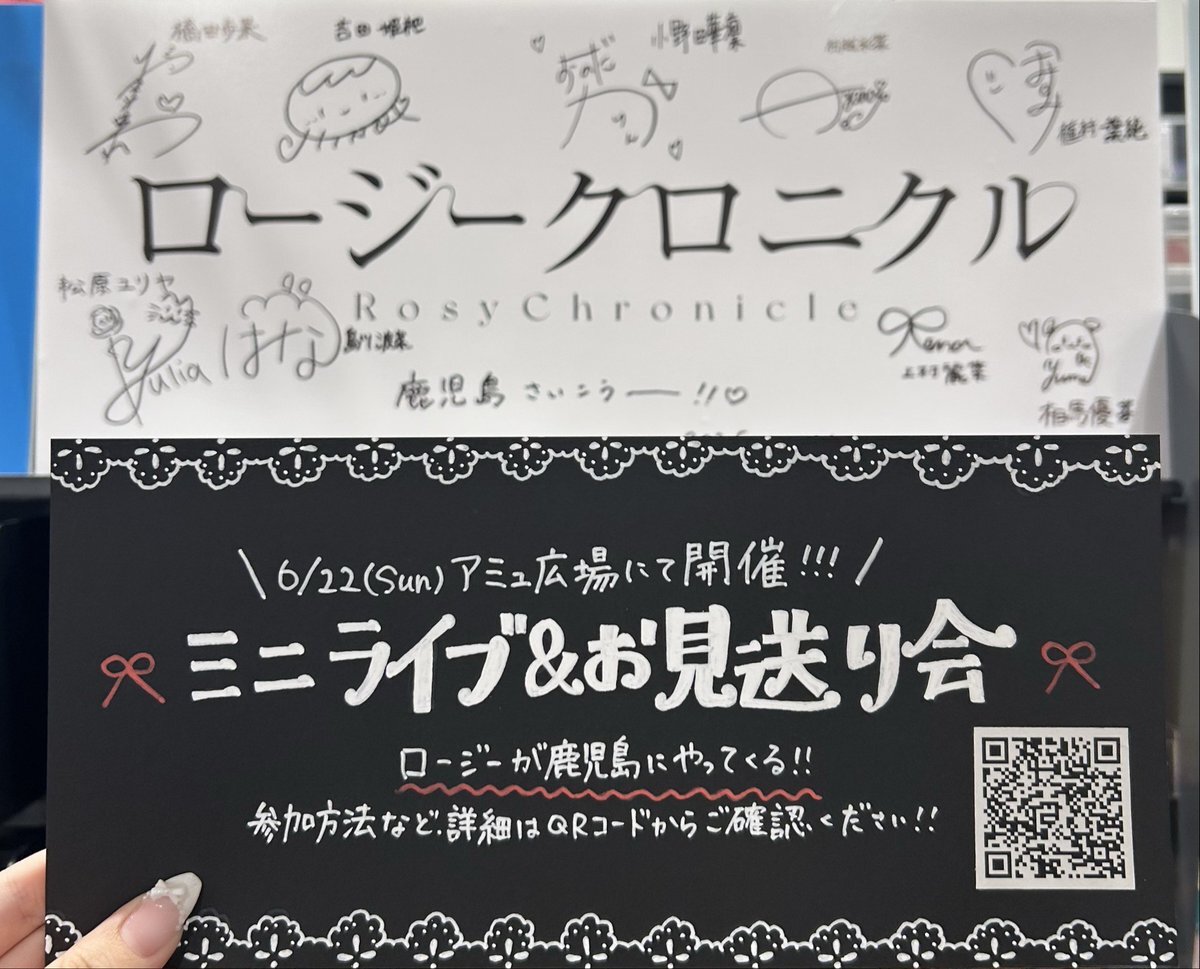 橋田歩果 吉田姫杷 小野田華凜 村越彩菜 植村葉純
おのだ
ロージークロニクル
RosyChronicle
松原ユリヤ
Yulia はな 島川波菜 Rena 上村麗菜 Yuma 相馬優芽
鹿児島さいこうー!!♡
\ 6/22(Sun)アミュ広場にて開催!!! /
ミニライブ&お見送り会
ロージーが鹿児島にやってくる!!
参加方法など、詳細はQRコードからご確認ください!!